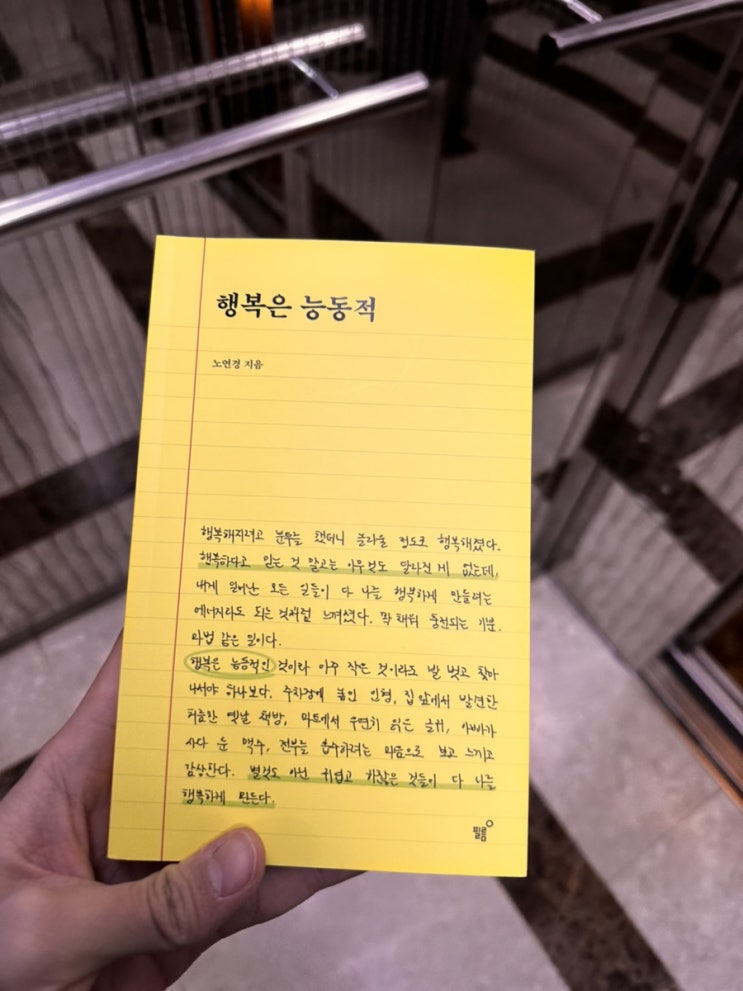 행복은 능동적
노연경 지음
행복해지려고 분투를 했더니 놀라울 정도로 행복해졌다.
행복하다고 믿는 것 말고는 아무것도 달라진 게 없는데,
내게 일어난 모든 일들이 다 나를 행복하게 만들려는
에너지라도 되는 것처럼 느껴졌다. 막 채워 충전되는 기분.
마법 같은 일이다.
행복은 능동적인 것이라 아주 작은 것이라도 발 벗고 찾아
나서야 하나보다. 주차장에 놓인 인형, 집 앞에서 발견한
허름한 옛날 책방, 마트에서 우연히 읽은 글귀, 아빠가
사다 둔 맥주, 전부를 흡수하려는 마음으로 보고 느끼고
감상한다. 별것도 아닌 귀엽고 하찮은 것들이 다 나를
행복하게 만든다.
필름